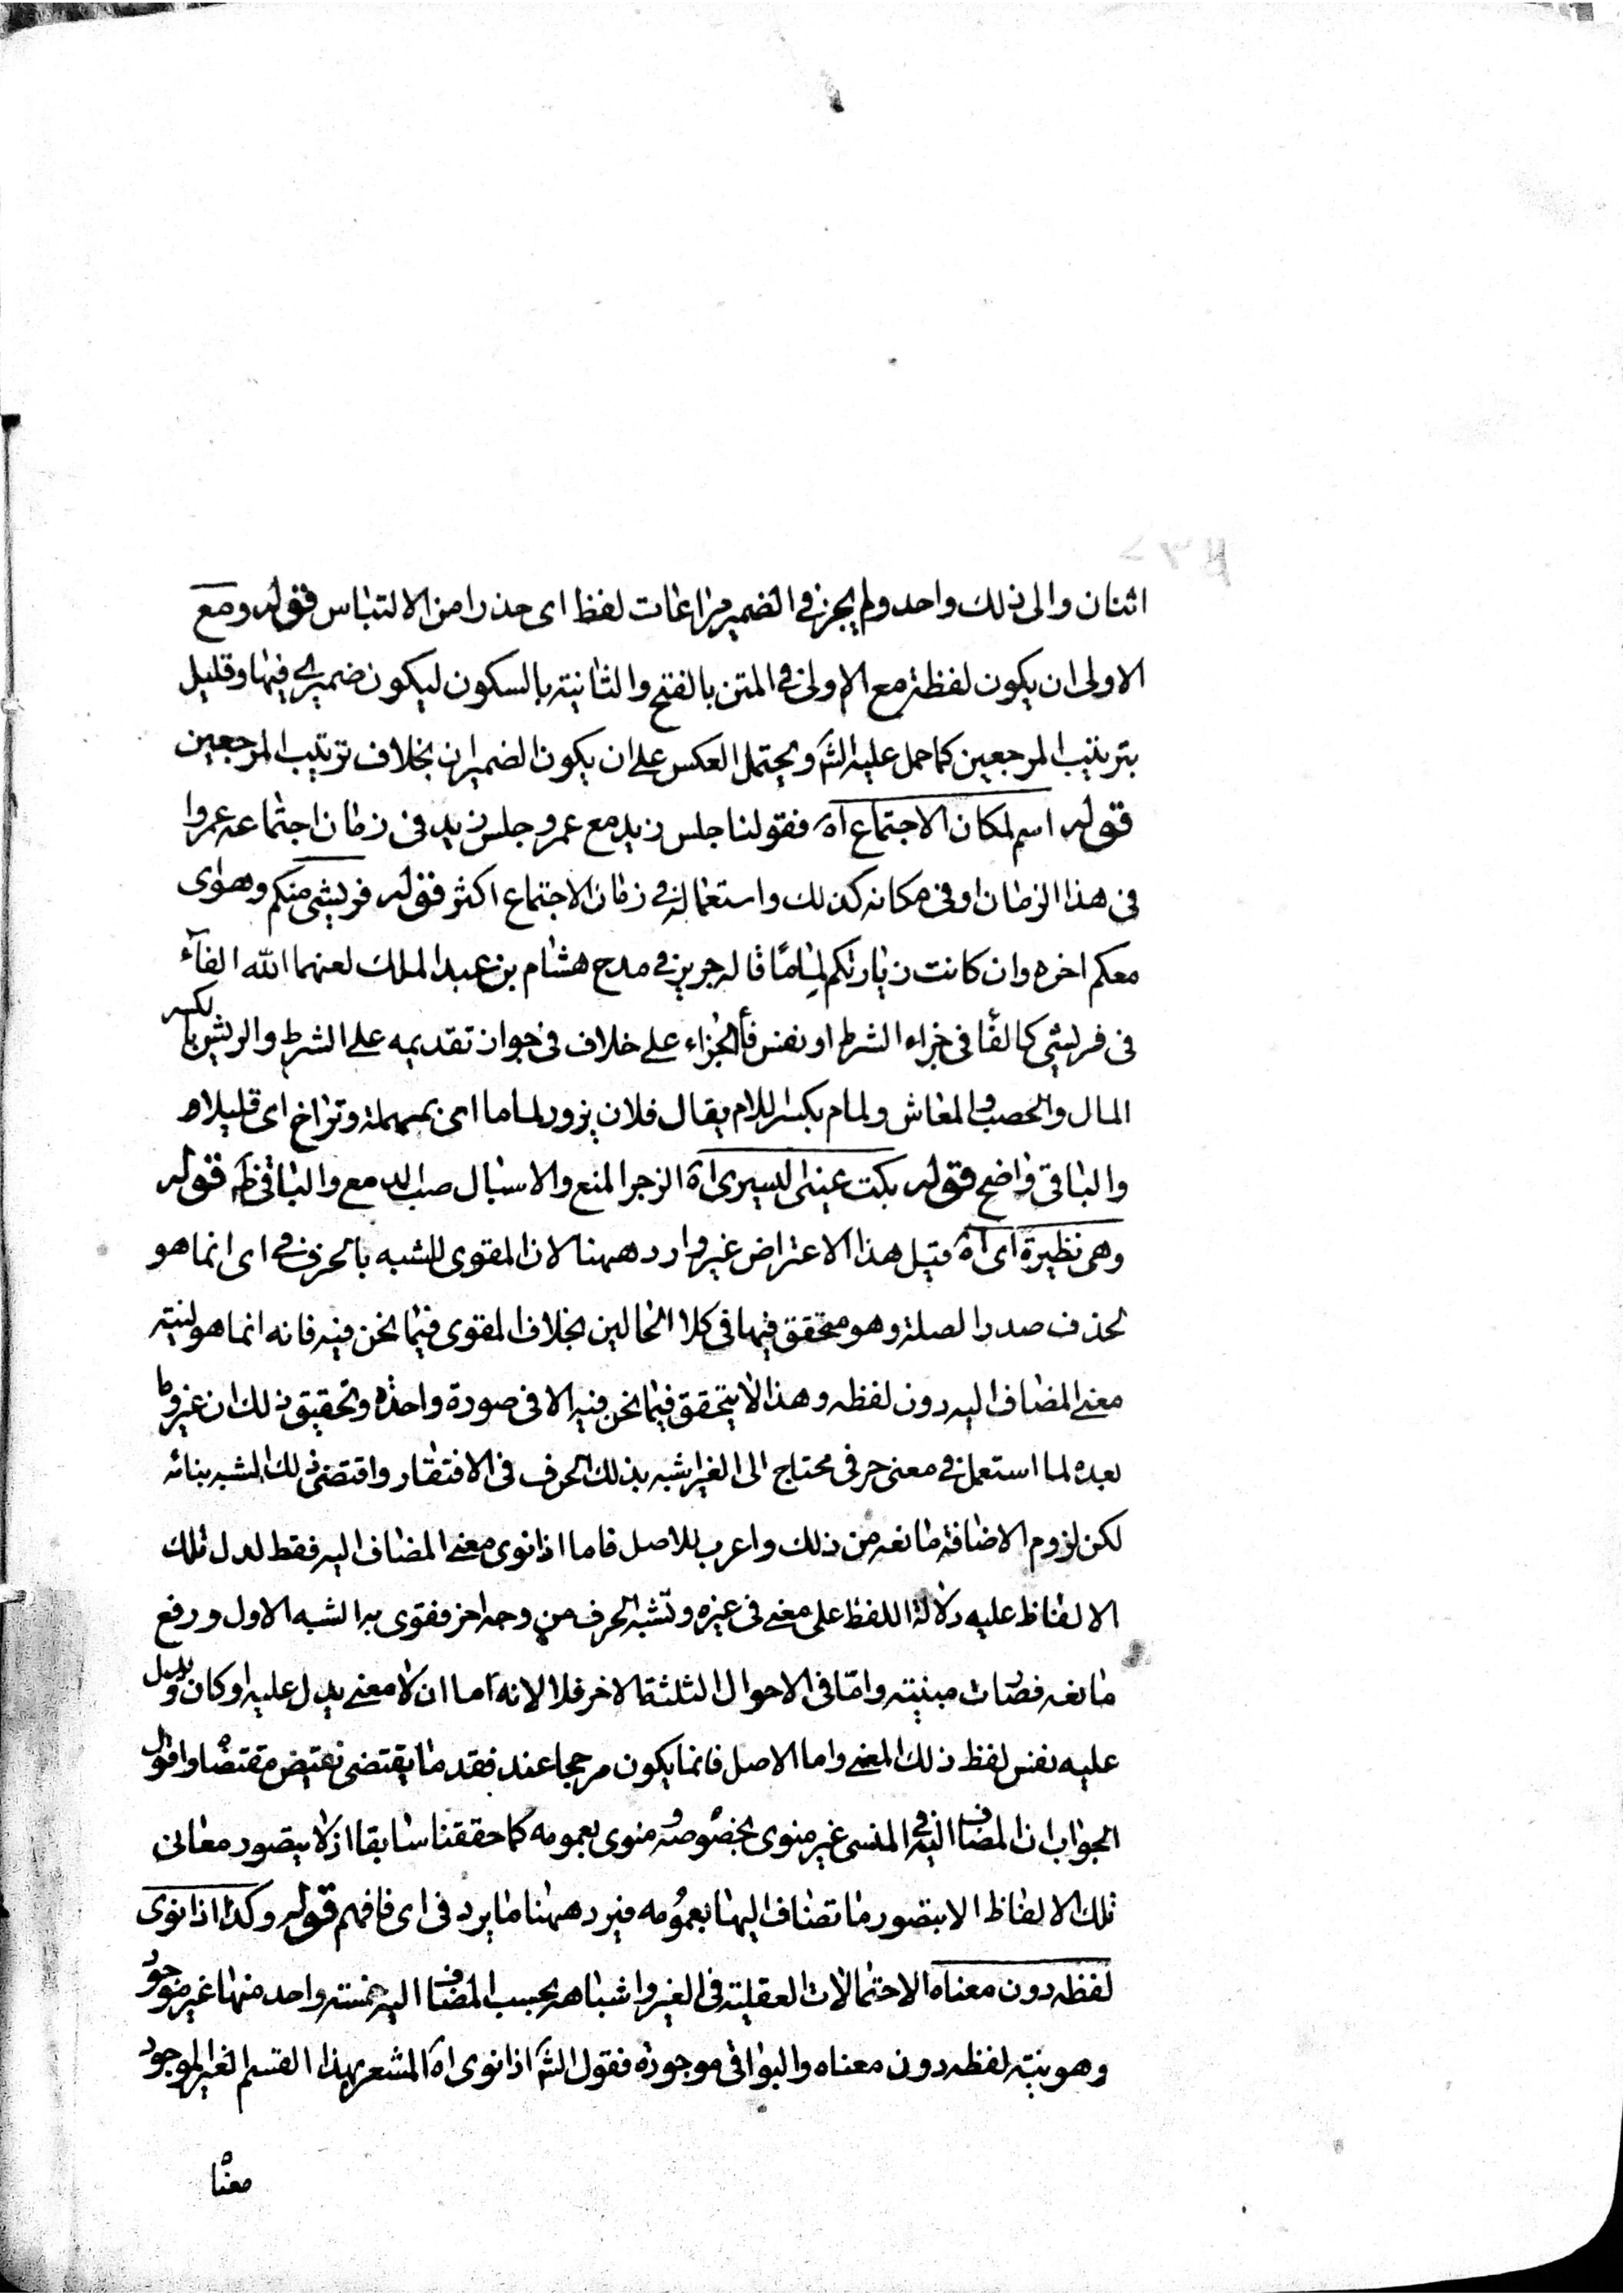 اثنان والى ذلك واحد ولم يجز فى الضمير مراعات لفظ اى حذرا من الالتباس قوله ومع
الاولى ان يكون لفظة مع الاولى فى المتن بالفتح والثانية بالسكون ليكون ضميرى فيها وقليل
بترتيب المرجعين كما حمل عليه الشم ويحتمل العكس على ان يكون الضميران بخلاف ترتيب المرجعين
قوله اسم لمكان الاجتماع اه فقولنا جلس زيد مع عمرو جلس زيد فى زمان اجتماعه عمروا
فى هذا الزمان او فى مكانه كذلك واستعماله فى زمان الاجتماع اكثر قوله فريشى منكم وهواى
معكم اخره وان كانت زيارتكم لِمامًا قاله جرير فى مدح هشام بن عبد الملك لعنهما الله الفآء
فى فريشى كما لفا فى جزاء الشرط او نفس فأ الجزاء على خلاف فى جواز تقديمه على الشرط والريش بالكسر
المال والخصب والمعاش ولمام بكسر اللام يقال فلان يزور لماما اى بمهملة وتراخ اى قليلا ه
والباقى واضح قوله بكت عينى اليسرى اه الزجر المنع والاسبال صب الدمع والباقى ظم قوله
وهى نظيرة اى اه قيل هذا الاعتراض غير وارد ههنا لان المقوى للشبه بالحرف فى اى انما هو
لحذف صدر الصلة وهو متحقق فيها فى كلا الحالين بخلاف المقوى فيما نحن فيه فانه انما هو لنية
معنى المضاف اليه دون لفظه وهذا لا يتحقق فيما نحن فيه الا فى صورة واحدة وتحقيق ذلك ان غير وما
بعده لما استعمل فى معنى حرفى محتاج الى الغير اشبه بذلك الحرف فى الافتقار واقتضى ذلك الشبه بنائه
لكن لزوم الاضافة مانعه من ذلك واعرب للاصل فاما اذا نوى معنى المضاف اليه فقط لدل تلك
الالفاظ عليه دلالة اللفظ على معنى فى غيره وتشبه الحرف من وجه اخر فقوى به الشبه الاول ورفع
مانعه فصات مبنية وامّا فى الاحوال الثلثة الاخر فلا لانه اما ان لا معنى يدل عليه او كان ودليل
عليه نفس لفظ ذلك المعنى واما الاصل فانما يكون مرجحا عند فقد ما يقتضى نقيض مقتضاه واقول
الجواب ان المضاف اليه فى المنسى غير منوى بخصوصه ومنوى بعمومه كما حققنا سابقا اذ لا يتصور معانى
تلك الالفاظ الا بتصور ما تضاف اليها بعمومه فيرد ههنا ما يرد فى اى فافهم قوله وكذا اذا نوى
لفظه دون معناه الاحتمالات العقلية فى الغير واشباهه بحسب المضاف اليه خمسة واحد منها غير موجود
وهو نية لفظه دون معناه والبواقى موجودة فقول الشم اذا نوى اه المشعر بهذا القسم الغير الموجود
معناه